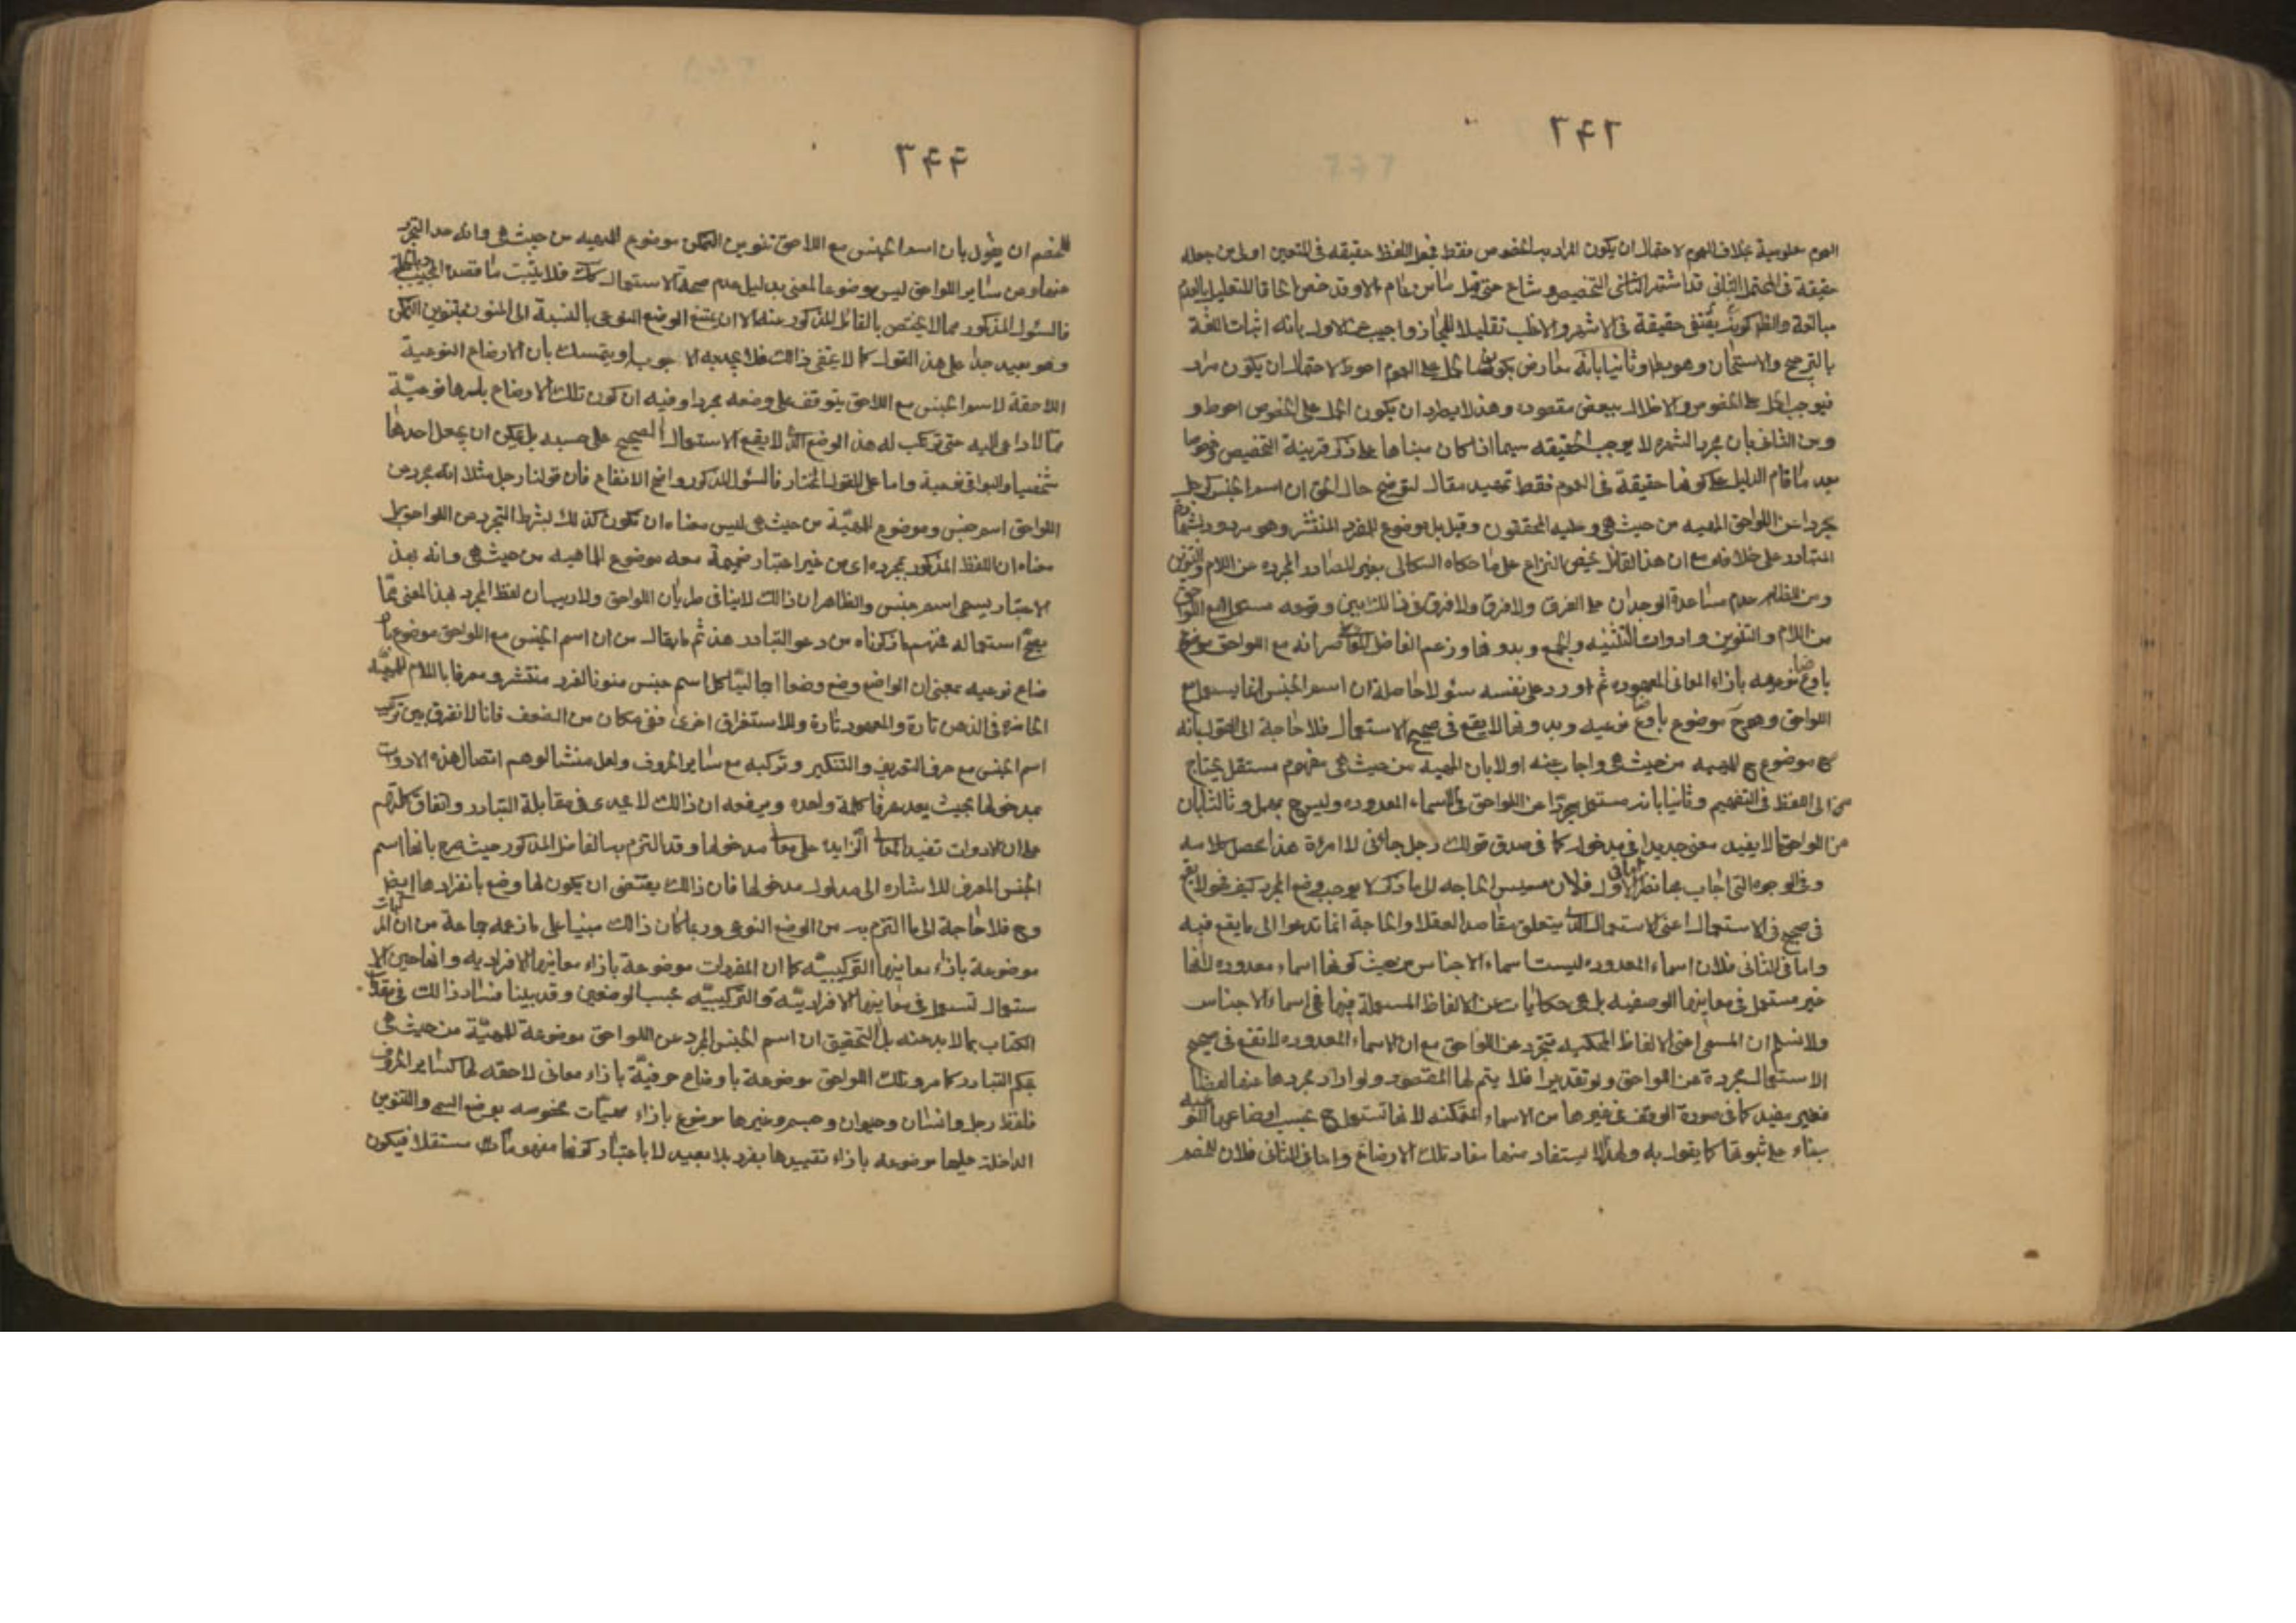 ٢٤٢
العموم معلومية بخلاف العموم لاحتمال ان يكون المراد به الخصوص فقط فجعل اللفظ حقيقة في المتعين اولى من جعله
حقيقة في المحتمل الثاني قد اشتهر التخصيص وشاع حتى قيل ما من عام الا وقد خص الحاقا للقليل بالعدم
مبالغة والظ كونه يقتضي حقيقة في الاشهر والاغلب تقليلا للمجاز واجيب عن الاول بانه اثبات اللغة
بالترجيح والاستحسان وهو بط وثانيا بانه معارض بكون الحمل على العموم احوط لاحتمال ان يكون مراد
فيوجب الحمل على الخصوص والاخلال ببعض مقصوده وهذا لا يطرد ان يكون الحمل على الخصوص احوط و
وعن الثاني بان مجرد الشهرة لا يوجب الحقيقه سيما اذا كان مبناها على ذكر قرينة التخصيص وخصوصا
بعد ما قام الدليل على كونها حقيقة في العموم فقط تمهيد مقال لتوضيح حال الحق ان اسم الجنس كرجل
مجردا عن اللواحق المهيه من حيث هي وعليه المحققون وقيل بل موضوع للفرد المنتشر وهو مردود بشهادة
التبادر على خلافه مع ان هذا القائل يخص النزاع على ما حكاه السكاكي بغير المصادر المجرده عن اللام والتنوين
ومن الظاهر عدم مساعدة الوجدان على الفرق ولا فرق في ذالك بين وقوعه مستعملا مع اللواحق
من اللام والتنوين وادوات التثنيه والجمع وبدونها وزعم الفاضل المعاصر انه مع اللواحق موضوع
باوضاع نوعيه بازاء المعاني المعهوده ثم اورد على نفسه سئولا حاصله ان اسم الجنس انما يستعمل مع
اللواحق وهو ح موضوع باوضاع نوعيه وبدونها لا يقع في صحيح الاستعمال فلا حاجة الى القول بانه
موضوع ح للمهيه من حيث هي واجاب عنه اولا بان المهيه من حيث هي مفهوم مستقل يحتاج
الى اللفظ في التفهيم وثانيا بانه مستعمل مجردا عن اللواحق في الاسماء المعدوده وليس ح بمهمل وثالثا بان
من اللواحق ما لا يفيد معنى جديدا في مدخوله كما في صدق قولك رجل جائني لا امرأة هذا محصل كلامه
وفي الوجوه التي اجاب بها نظر اما في الاول فلان مسيس الحاجه الى ما ذكر لا يوجب وضع المجرد كيف هو لا يقع
في صحيح الاستعمال اعني الاستعمال الذي يتعلق مقاصد العقلا والحاجة انما تدعوا الى ما يقع فيه
واما في الثاني فلان اسماء المعدوده ليست اسماء الاجناس من حيث كونها اسماء معدوده لانها
غير مستعمل في معانيها الوصفيه بل هي حكايات عن الالفاظ المستعملة فيها في اسماء الاجناس
ولا نسلم ان المسمى اعني الالفاظ المحكيه تتجرد عن اللواحق مع ان الاسماء المعدوده لا تقع في صحيح
الاستعمال مجردة عن اللواحق ولو تقديرا فلا يتم لها المقصود ولو اراد مجردها عنها لفظا
فغير مفيد كما في صورة الوقف في غيرها من الاسماء المتمكنه لانها تستعمل ح بحسب اوضاعها النوعيه
بناء على ثبوتها كما يقول به ولهذا يستفاد منها مفاد تلك الاوضاع واما في الثالث فلان للخصم
٢٤٤
للخصم ان يقول بان اسم الجنس مع اللاحق تنوين التمكن موضوع للمهيه من حيث هي وانه عند التجرد
عنها وعن ساير اللواحق ليس موضوعا لمعنى بدليل عدم صحة الاستعمال كك فلا يثبت ما قصده المجيب
فالسئول المذكور مما لا يختص بالقائل المذكور عنه الا ان يمنع الوضع النوعي بالنسبة الى المنون بتنوين التمكن
وهو بعيد جدا على هذا القول كما لا يخفى ذالك فلا يجديه الا جوب او يتمسك بان الاوضاع النوعية
اللاحقة لاسم الجنس مع اللاحق يتوقف على وضعه مجردا وفيه ان كون تلك الاوضاع باسرها نوعيّة
مما لا داعي اليه حتى توجب له هذا الوضع الذي لا يقع الاستعمال الصحيح على حسبه بل يمكن ان يجعل احدها
شخصيا والبواقي نوعية واما على القول المختار فالسئول المذكور واضح الاندفاع فان قولنا رجل مثلا انه مجرد عن
اللواحق اسم جنس وموضوع للمهيّة من حيث هي ليس معناه ان تكون كذلك بشرط التجرد عن اللواحق بل
معناه ان اللفظ المذكور بمجرده اي من غير اعتبار ضميمة معه موضوع للماهيه من حيث هي وانه بهذا
الاعتبار يسمى اسم جنس والظاهر ان ذالك لا ينافي طريان اللواحق ولا ريب ان لفظ المجرد بهذا المعنى ممّا
يصح استعماله عنهم ما ذكرناه من دعوى التبادر هذا ثم ما يقال من ان اسم الجنس مع اللواحق موضوع باو
ضاع نوعيه بمعنى ان الواضع وضع وضعا اجماليّا كل اسم جنس منونا لفرد منتشر ومعرفا باللام للمهيّة
الحاضره في الذهن تارة والمعهود تارة وللاستغراق اخرى ففي مكان من الضعف فانا لا نفرق بين تركيب
اسم الجنس مع حرف التعريف والتنكير وتركبه مع ساير الحروف ولعل منشا الوهم اتصال هذه الادوات
بمدخولها بحيث يعد عرفا كلمة واحده ويدفعه ان ذالك لا يجدى في مقابلة التبادر واتفاق كلمتهم
على ان الادوات تفيد المعاني الزايده على معاني مدخولها وقد التزم به الفاضل المذكور حيث صرح بانها اسم
الجنس المعرف للاشاره الى مدلول مدخولها فان ذالك يقتضي ان يكون لها وضع بانفرادها ايضا
وح فلا حاجة الى ما التزم به من الوضع النوعي وربما كان ذالك مبنيا على ما زعمه جماعة من ان المركبات
موضوعة بازاء معانيها التركيبيّه كما ان المفردات موضوعة بازاء معانيها الافراديه وانها حين الا
ستعمال تستعمل في معانيها الافراديّة والتركيبيّه بحسب الوضعين وقد بينا فساد ذالك في مقدمات
الكتاب بما لا مزيد عنه بل التحقيق ان اسم الجنس المجرد عن اللواحق موضوعة للمهيّة من حيث هي
بحكم التبادر كما مر وتلك اللواحق موضوعة باوضاع حرفيّة بازاء معاني لاحقه لها كساير الحروف
فلفظ رجل وانسان وحيوان وجسم وغيرها موضوع بازاء مهيات مخصوصه بوضع اسمي والتنوين
الداخلة عليها موضوعه بازاء تقييدها بفرد بلا بعينه لا باعتبار كونها مفهومات مستقلا فيكون